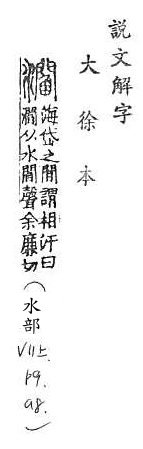 説文解字
大徐本
海岱之閒謂相汙曰
从水閻聲余廉切
（水部
VII上.